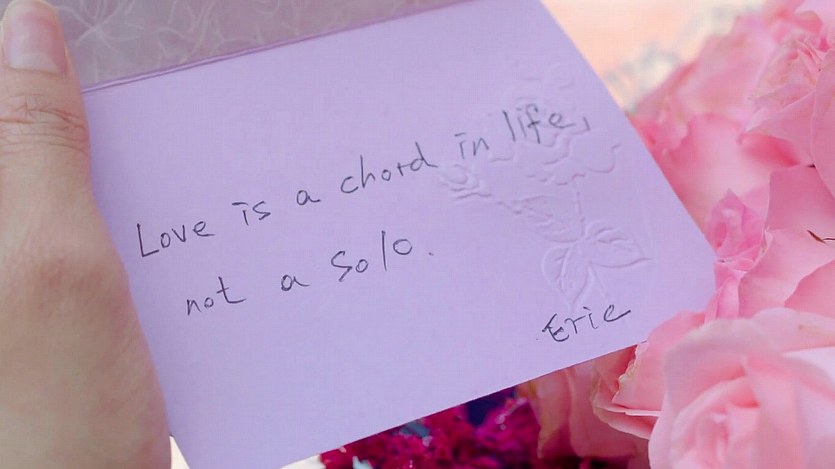 Love is a chord in life,
not a Solo.
Eric